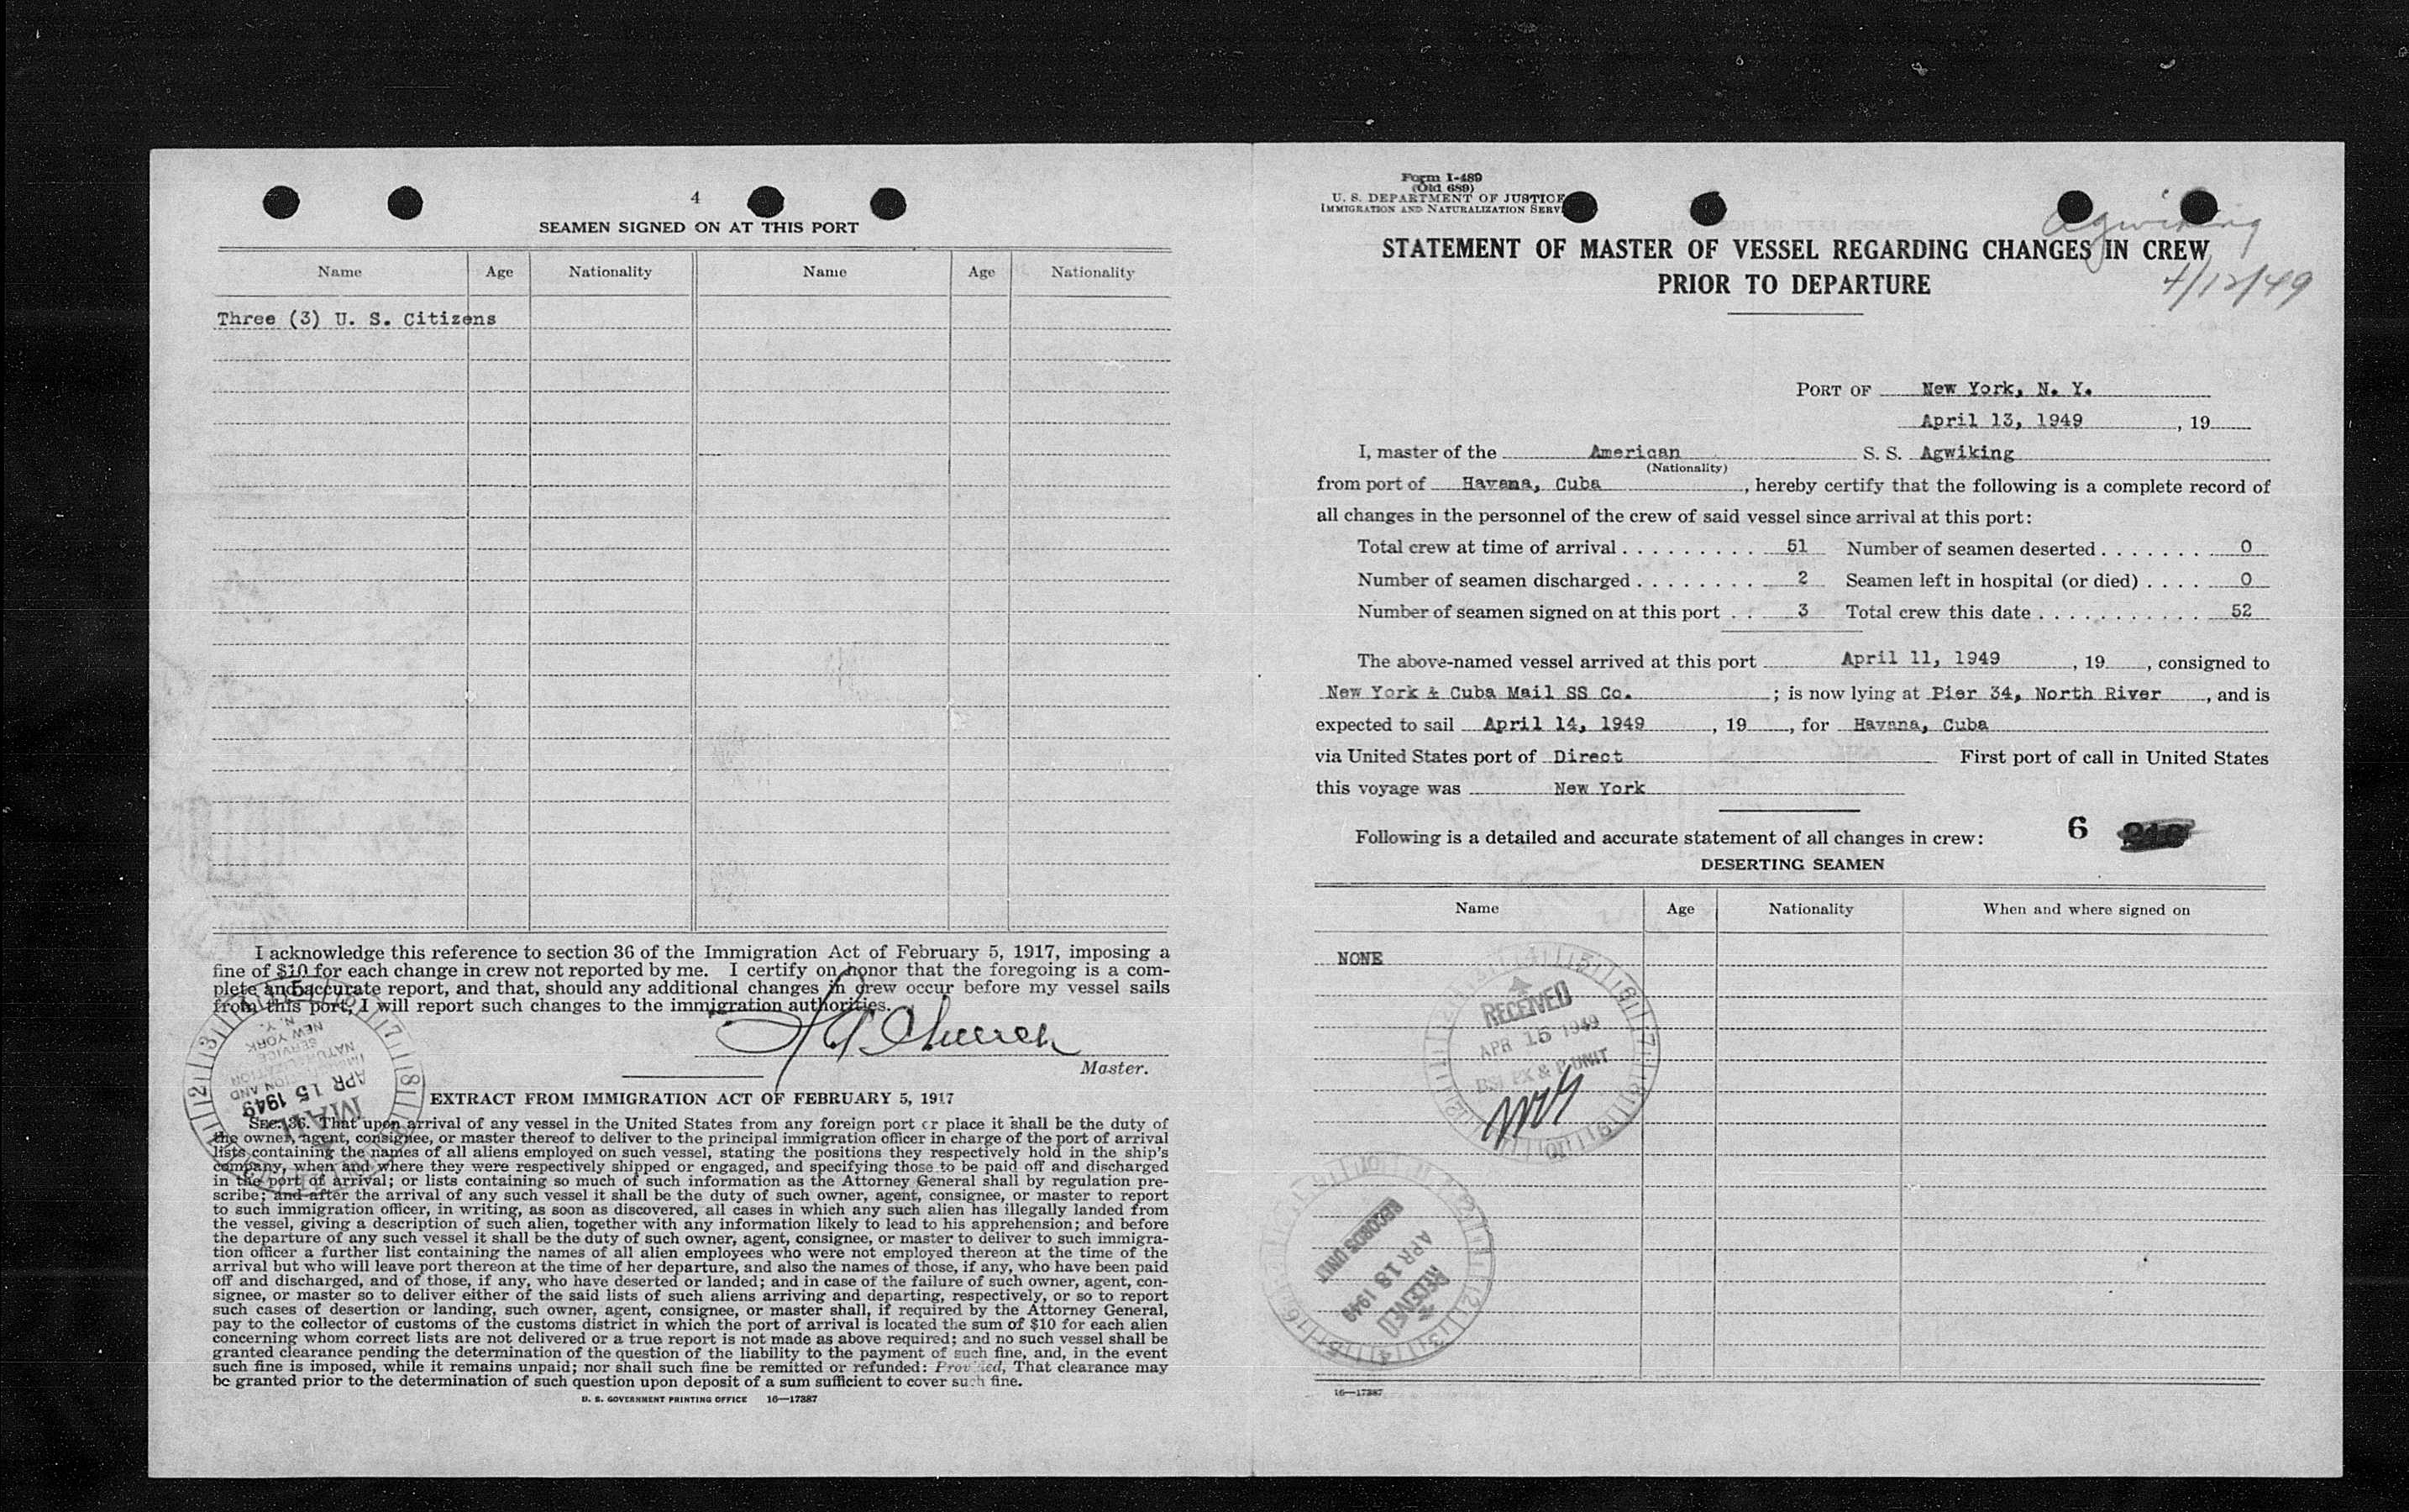 4
SEAMEN SIGNED ON AT THIS PORT
Name Age Nationality Name Age Nationality
Three (3) U. S. Citizens
I acknowledge this reference to section 36 of the Immigration Act of February 5, 1917, imposing a
fine of $10 for each change in crew not reported by me. I certify on honor that the foregoing is a com-
plete and accurate report, and that, should any additional changes in crew occur before my vessel sails
from this port, I will report such changes to the immigration authorities.
Master.
MAIL
APR 15 1949
IMMIGRATION AND
NATURALIZATION
SERVICE
NEW YORK
N. Y.
EXTRACT FROM IMMIGRATION ACT OF FEBRUARY 5, 1917
SEC. 36. That upon arrival of any vessel in the United States from any foreign port or place it shall be the duty of
the owner, agent, consignee, or master thereof to deliver to the principal immigration officer in charge of the port of arrival
lists containing the names of all aliens employed on such vessel, stating the positions they respectively hold in the ship's
company, when and where they were respectively shipped or engaged, and specifying those to be paid off and discharged
in the port of arrival; or lists containing so much of such information as the Attorney General shall by regulation pre-
scribe; and after the arrival of any such vessel it shall be the duty of such owner, agent, consignee, or master to report
to such immigration officer, in writing, as soon as discovered, all cases in which any such alien has illegally landed from
the vessel, giving a description of such alien, together with any information likely to lead to his apprehension; and before
the departure of any such vessel it shall be the duty of such owner, agent, consignee, or master to deliver to such immigra-
tion officer a further list containing the names of all alien employees who were not employed thereon at the time of the
arrival but who will leave port thereon at the time of her departure, and also the names of those, if any, who have been paid
off and discharged, and of those, if any, who have deserted or landed; and in case of the failure of such owner, agent, con-
signee, or master so to deliver either of the said lists of such aliens arriving and departing, respectively, or so to report
such cases of desertion or landing, such owner, agent, consignee, or master shall, if required by the Attorney General,
pay to the collector of customs of the customs district in which the port of arrival is located the sum of $10 for each alien
concerning whom correct lists are not delivered or a true report is not made as above required; and no such vessel shall be
granted clearance pending the determination of the question of the liability to the payment of such fine, and, in the event
such fine is imposed, while it remains unpaid; nor shall such fine be remitted or refunded: Provided, That clearance may
be granted prior to the determination of such question upon deposit of a sum sufficient to cover such fine.
U. S. GOVERNMENT PRINTING OFFICE 16—17387
Form I-489
(Old 689)
U. S. DEPARTMENT OF JUSTICE
IMMIGRATION AND NATURALIZATION SERV
Agwiking
4/12/49
STATEMENT OF MASTER OF VESSEL REGARDING CHANGES IN CREW
PRIOR TO DEPARTURE
PORT OF New York, N. Y.
April 13, 1949, 19
I, master of the American S. S. Agwiking
(Nationality)
from port of Havana, Cuba, hereby certify that the following is a complete record of
all changes in the personnel of the crew of said vessel since arrival at this port:
Total crew at time of arrival . . . . . . . . . . 51 Number of seamen deserted . . . . . . . . 0
Number of seamen discharged . . . . . . . . 2 Seamen left in hospital (or died) . . . . 0
Number of seamen signed on at this port . . 3 Total crew this date . . . . . . . . . . . . 52
The above-named vessel arrived at this port April 11, 1949, 19, consigned to
New York & Cuba Mail SS Co.; is now lying at Pier 34, North River, and is
expected to sail April 14, 1949, 19, for Havana, Cuba
via United States port of Direct First port of call in United States
this voyage was New York
Following is a detailed and accurate statement of all changes in crew: 6
DESERTING SEAMEN
Name Age Nationality When and where signed on
NONE
RECEIVED
APR 15 1949
RECEIVED
APR 18 1949
RECORDS UNIT
16—17387